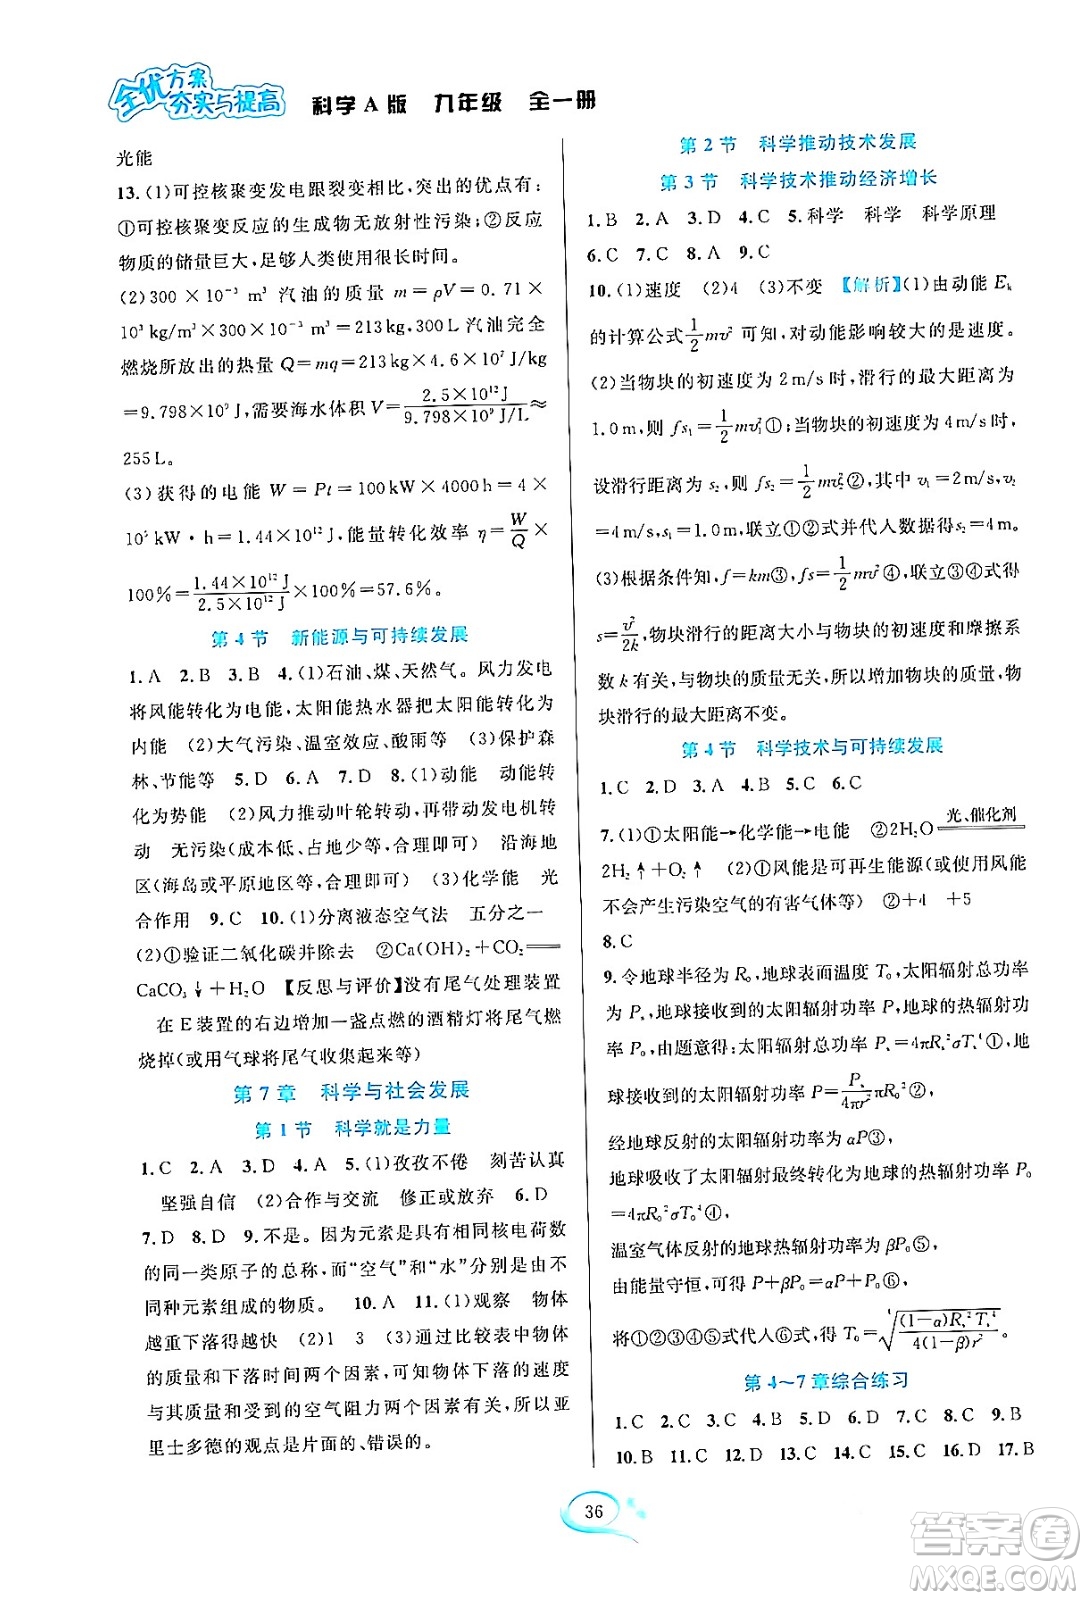 全优方案
夯实与提高
科学A版 九年级 全一册
光能
13. (1)可控核聚变发电跟裂变相比,突出的优点有:
①可控核聚变反应的生成物无放射性污染;②反应
物质的储量巨大,足够人类使用很长时间。
(2)300 ×10⁻³ m³ 汽油的质量 m=ρV=0.71×
10³ kg/m³×300×10⁻³ m³=213kg,300L 汽油完全
燃烧所放出的热量 Q=mq=213kg×4.6×10⁷J/kg
=9.798×10⁹J,需要海水体积 V=2.5×10¹²J/9.798×10⁹J/L≈
255L。
(3)获得的电能 W=Pt=100kW×4000h=4×
10⁵kW·h=1.44×10¹²J,能量转化效率 η=W/Q×
100%=1.44×10¹²J/2.5×10¹²J×100%=57.6%。
第4节 新能源与可持续发展
1. A 2. B 3. B 4. (1)石油、煤、天然气。风力发电
将风能转化为电能,太阳能热水器把太阳能转化为
内能 (2)大气污染、温室效应、酸雨等 (3)保护森
林、节能等 5. D 6. A 7. D 8. (1)动能 动能转
化为势能 (2)风力推动叶轮转动,再带动发电机转
动 无污染(成本低、占地少等,合理即可) 沿海地
区(海岛或平原地区等,合理即可) (3)化学能 光
合作用 9. C 10. (1)分离液态空气法 五分之一
(2)①验证二氧化碳并除去 ②Ca(OH)₂+CO₂══
CaCO₃↓+H₂O 【反思与评价】没有尾气处理装置
在E装置的右边增加一盏点燃的酒精灯将尾气燃
烧掉(或用气球将尾气收集起来等)
第7章 科学与社会发展
第1节 科学就是力量
1. C 2. A 3. D 4. A 5. (1)孜孜不倦 刻苦认真
坚强自信 (2)合作与交流 修正或放弃 6. D
7. D 8. D 9. 不是。因为元素是具有相同核电荷数
的同一类原子的总称,而“空气”和“水”分别是由不
同种元素组成的物质。 10. A 11. (1)观察 物体
越重下落得越快 (2)1 3 (3)通过比较表中物体
的质量和下落时间两个因素,可知物体下落的速度
与其质量和受到的空气阻力两个因素都有关,故亚
里士多德的观点是片面的、错误的。
第2节 科学推动技术发展
第3节 科学技术推动经济增长
1. B 2. A 3. D 4. C 5. 科学 科学 科学原理
6. C 7. C 8. A 9. C
10. (1)速度 (2)4 (3)不变 【解析】(1)由动能 Eₖ
的计算公式1/2mv²可知,对动能影响较大的是速度。
(2)当物块的初速度为2m/s时,滑行的最大距离为
1.0m,则 fs₁=1/2mv₁²①;当物块的初速度为4m/s时,
设滑行距离为 s₂,则 fs₂=1/2mv₂²②,v₁=2m/s,v₂
=4m/s,s₁=1.0m,联立①②式并代入数据得s₂=4m。
(3)根据条件知,f=km③,fs=1/2mv²④,联立③④式得
s=v²/2k,物块滑行的距离大小与物块的初速度和摩擦系
数 k 有关,与物块的质量无关,所以增加物块的质量,物
块滑行的最大距离不变。
第4节 科学技术与可持续发展
1. C 2. D 3. A 4. B 5. C 6. C
7. (1)①太阳能→化学能→电能 ②2H₂O ══光、催化剂══
2H₂↑+O₂↑ (2)①风能是可再生能源(或使用风能
不会产生污染空气的有害气体等) ②+4 +5
8. C
9. 令地球半径为 R₀,地球表面温度 T₀,太阳辐射总功率
P,地球接收到的太阳辐射功率 P,地球的热辐射总功
率 P₀,由题意得:太阳辐射总功率 Pₛ=4πRₛ²σTₛ⁴①,地
球接收到的太阳辐射功率 P=Pₛ/4πr²πR₀²②,
经地球反射的太阳辐射功率为 αP③,
地球吸收了太阳辐射最终转化为地球的热辐射功率 P₀
=4πR₀²σT₀⁴④,
温室气体反射的地球热辐射功率为 βP₀⑤,
由能量守恒,可得 P+βP₀=αP+P₀⑥,
将①②③④⑤式代入⑥式,得 T₀=⁴√((1-α)Rₛ²Tₛ⁴/4(1-β)r²)。
第4~7章综合练习
1. C 2. C 3. C 4. D 5. D 6. D 7. C 8. C 9. B
10. B 11. A 12. B 13. D 14. C 15. C 16. D 17. B
36
答案圈
MXQE.COM